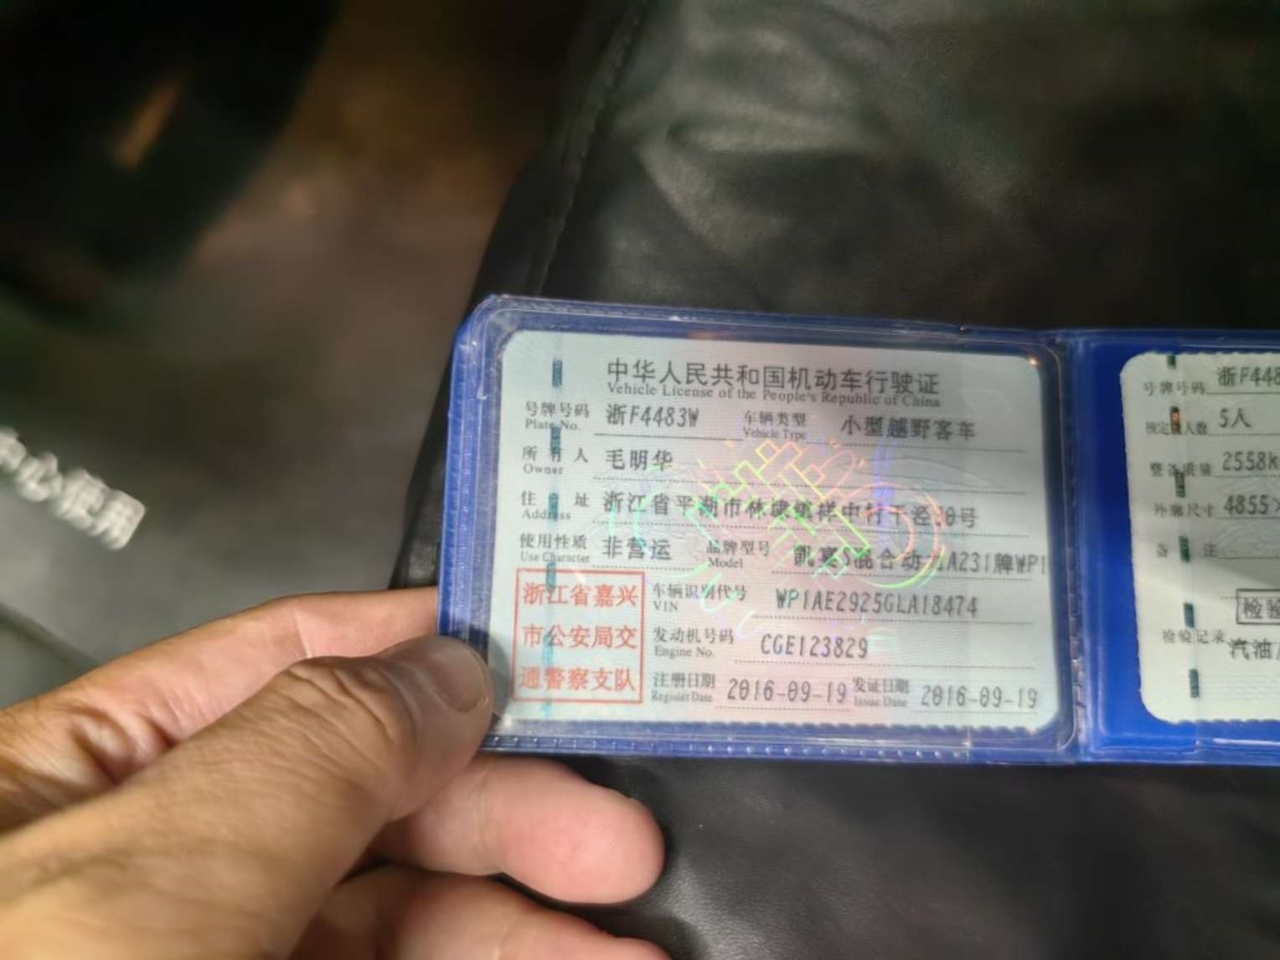 中华人民共和国机动车行驶证
Vehicle License of the People's Republic of China
号牌号码 浙F4483W 车辆类型 小型越野客车
Plate No. Vehicle Type
所有人 毛明华
Owner
住址 浙江省平湖市林埭镇祥中行于泾 号
Address
使用性质 非营运 品牌型号 凯宴S混合动力A231牌WP1
Use Character Model
浙江省嘉兴
市公安局交
通警察支队
车辆识别代号 WP1AE2925GLA18474
VIN
发动机号码 CGE123829
Engine No.
注册日期 2016-09-19 发证日期 2016-09-19
Register Date Issue Date
号牌号码 浙F448
核定人数 5人
整备质量 2558k
外廓尺寸 4855
备注
检验
检验记录
汽油